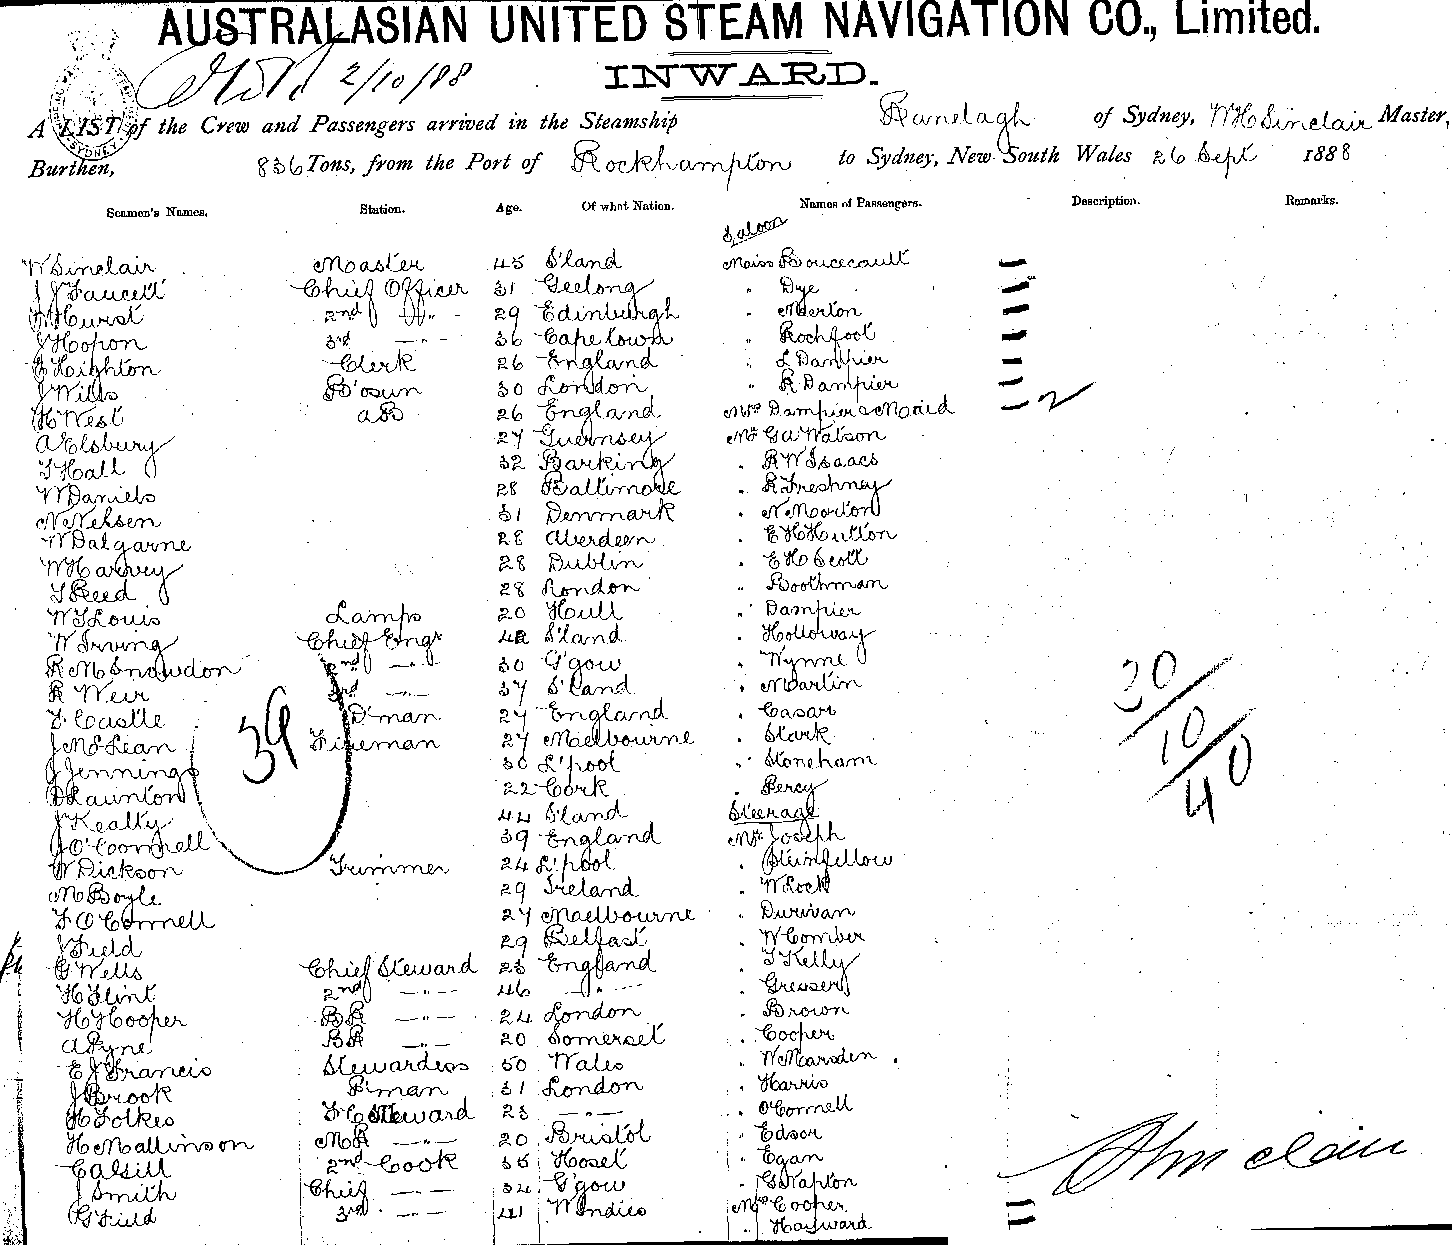 AUSTRALASIAN UNITED STEAM NAVIGATION CO., Limited.
2/10/88
INWARD.
A LIST of the Crew and Passengers arrived in the Steamship Ranelagh of Sydney, WH Sinclair Master,
Burthen, 836 Tons, from the Port of Rockhampton to Sydney, New South Wales 26 Sept 1888
Seamen's Names. Station. Age. Of what Nation. Names of Passengers. Description. Remarks.
Saloon
W Sinclair Master 45 S'land Miss Boucecault
J J Faucett Chief Officer 31 Geelong " Dye
Hurst 2nd " 29 Edinburgh " Merton
J Hopon 3rd —"— 36 Cape town " Rochfort
E Highton Clerk 26 England " L Dampier
J Wills B'osun 30 London " R Dampier
H West AB 26 England Mrs Dampier & Maid 2
A Elsbury 27 Guernsey Mr GA Watson
T Hall 32 Barking " RW Isaacs
W Daniels 28 Baltimore " R Freshney
N Nelsen 31 Denmark " N Morton
W Dalgarne 28 Aberdeen " E H Hutton
W Harvey 28 Dublin " E H Scott
T Reed 28 London " Boothman
W T Louis Lamps 20 Hull " Dampier
W Irving Chief Engr 42 S'land " Holloway
R M Snowdon 2nd —"— 30 G'gow " Wynne
R Weir 3rd —"— 37 S'land " Martin
F Castle D'man 27 England " Casar
J McLean Fireman 27 Melbourne " Stark
J Jennings 30 L'pool " Stoneham
D Launton 22 Cork " Percy
J Kealty 44 S'land Steerage
J O'Connell 39 England Mr Joseph
W Dickson Trimmer 24 L'pool
M Boyle 29 Ireland " W Lock
F O'Connell 27 Melbourne " Durivan
J Field 29 Belfast " W Comber
G Wells Chief Steward 23 England " T Kelly
H Flint 2nd —"— 46 —"—
H Hooper BR —"— 24 London " Brown
A Pyne BR —"— 20 Somerset " Cooper
E J Francis Stewardess 50 Wales " W Marsden
J Brook P'man 31 London " Harris
H Folkes F C Steward 23 —"— " O'Connell
H Mallinson MR —"— 20 Bristol " Edsor
C Alsill 2nd Cook 35 " Egan
J Smith Chief —"— 34 G'gow " G Napton
G Field 3rd —"— 41 W Indies Mrs Cooper
" Hayward
39
30/10/40